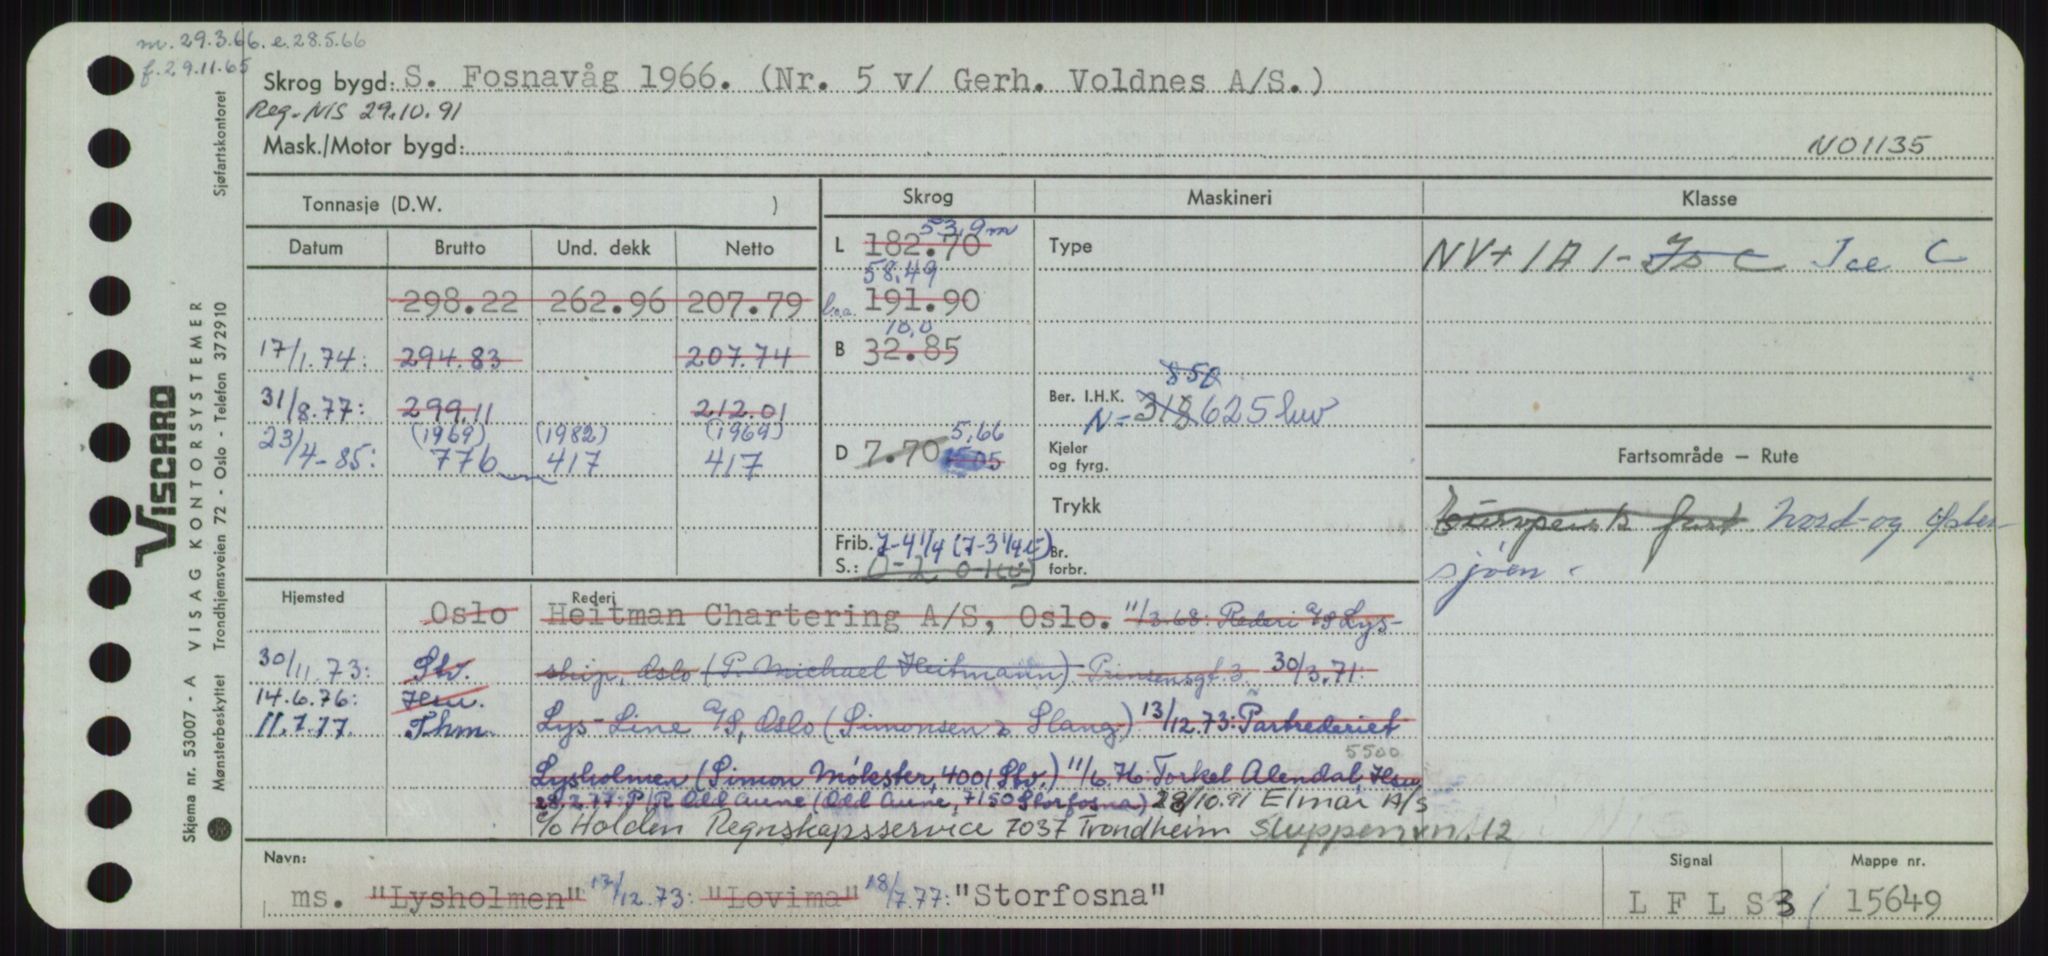 m. 29.3.66. e. 28.5.66
f. 29.11.65
Skrog bygd: S. Fosnavåg 1966. (Nr. 5 v/ Gerh. Voldnes A/S.)
Reg. NIS 29.10.91
Mask./Motor bygd:
NO1135
Tonnasje (D.W. )
Skrog
Maskineri
Klasse
Datum Brutto Und. dekk Netto
298.22 262.96 207.79
17/1.74: 294.83 207.74
31/8.77: 299.11 212.01
(1969) (1982) (1969)
23/4-85: 776 417 417
53,9 m
L 182.70
58,49
l.o.a. 191.90
10,0
B 32.85
5,66
D 7.70 5.05
Frib. 7-4 1/4 (7-3 1/4)
S.: 0-2
Type
850
Ber. I.H.K.
N= 318 625 hw
Kjeler
og fyrg.
Trykk
Br.
forbr.
NV + 1 A 1 - Is C Ice C
Fartsområde – Rute
Europeisk fart Nord- og Øster-
sjøen.
Hjemsted
Oslo
30/11.73: Stv.
14.6.76: Hsu.
11.7.77. Thm.
Rederi
Heitman Chartering A/S, Oslo. 11/3.68: Rederi A/S Lys-
skip, Oslo (P. Michael Heitmann) Prinsensgt. 3 30/3.71:
Lys-Line A/S, Oslo (Simonsen & Slang.) 13/12.73: Partrederiet
5500
Lysholmen (Simon Møkster, 4001 Stv.) 11/6.76: Torkel Alendal, Hsu
28.2.77: P/R Odd Aune (Odd Aune, 7150 Storfosna) 28/10.91 Elmar A/S
c/o Holden Regnskapsservice 7037 Trondheim Sluppenvn. 12
Navn:
ms. "Lysholmen" 13/12.73: "Lovima" 18/7.77: "Storfosna"
Signal
L F L S 3
Mappe nr.
15649
VISCARD
Skjema nr. 53007 - A VISAG KONTORSYSTEMER
Mønsterbeskyttet Trondhjemsveien 72 - Oslo - Telefon 372910
Sjøfartskontoret